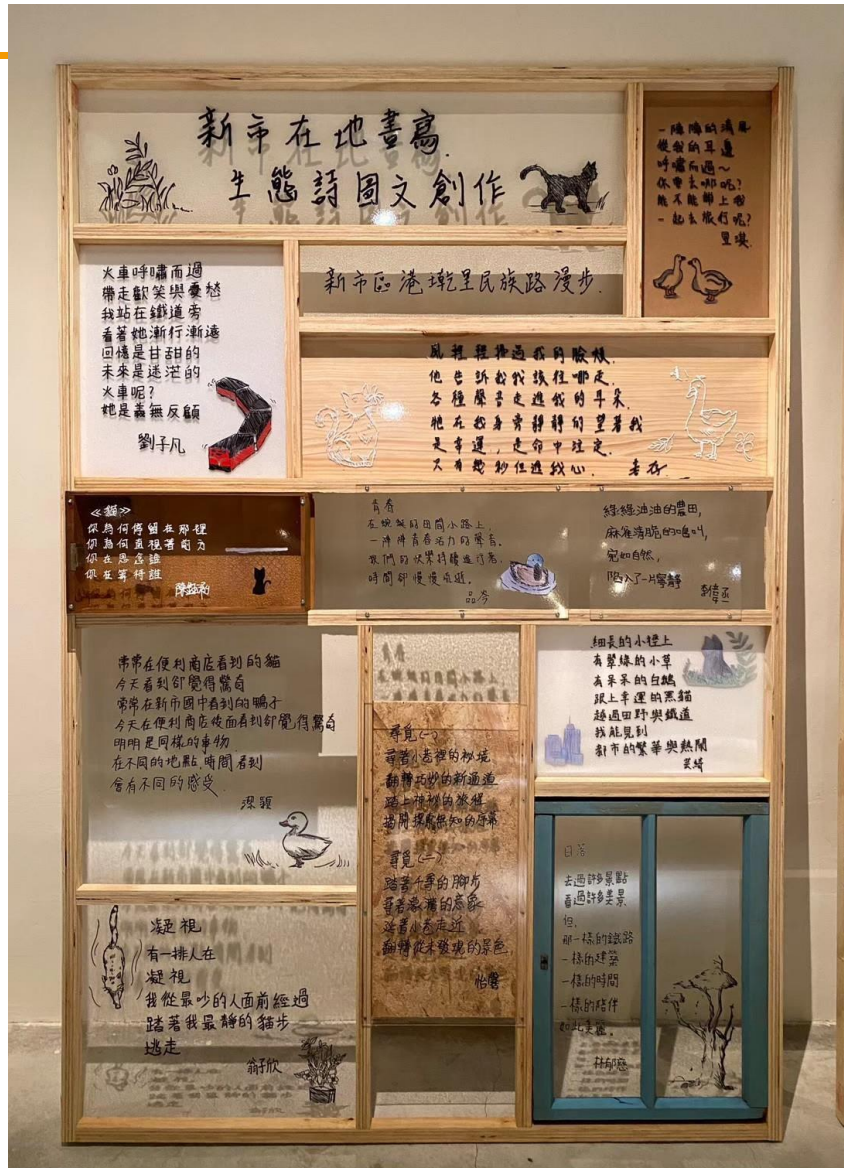 新市在地書寫
生態詩圖文創作
一陣陣的
從我的耳邊
呼嘯而過~
你要去哪呢?
能不能帶上我
一起去旅行呢?
火車呼嘯而過
帶走歡笑與憂愁
我站在鐵道旁
看著她漸行漸遠
回憶是甘甜的
未來是迷茫的
火車呢?
她是義無反顧
劉子凡
新市區港墘里民族路漫步.
風輕輕掃過我的臉頰.
他告訴我我該往哪走.
各種聲音走進我的耳朵.
牠在我身旁靜靜的望著我
是幸運,是命中注定.
又有幾秒住進我心.
《貓》
你為何停留在那裡
你為何直視著前方
你在思念誰
你在等待誰
青春
在綿綿的田間小路上,
一陣陣青春活力的聲音.
我們的快樂持續進行著.
時間卻慢慢流逝.
品岑
綠綠油油的農田,
麻雀清脆的鳴叫,
宛如自然,
陷入了一片寧靜
常常在便利商店看到的貓
今天看到卻覺得驚奇
常常在新市國中看到的鴨子
今天在便利商店後面看到卻覺得驚奇
明明是同樣的事物
在不同的地點,時間看到
會有不同的感受.
潔穎
尋覓(一)
尋著小巷裡的秘境
翻轉巧妙的新通道
踏上神秘的旅程
揭開探索無知的序幕
尋覓(二)
踏著十等的腳步
尋著濃濃的意象
沿著小巷走近
翻轉從未發現的景色
怡雲
細長的小徑上
有翠綠的小草
有呆呆的白鵝
跟上幸運的黑貓
越過田野與鐵道
我能見到
都市的繁華與熱鬧
日落
去過許多景點
看過許多美景
但,
那一樣的鐵路
一樣的建築
一樣的時間
一樣的陪伴
如此美麗。
凝視
有一排人在
凝視
我從最吵的人面前經過
踏著我最靜的貓步
逃走
翁子欣